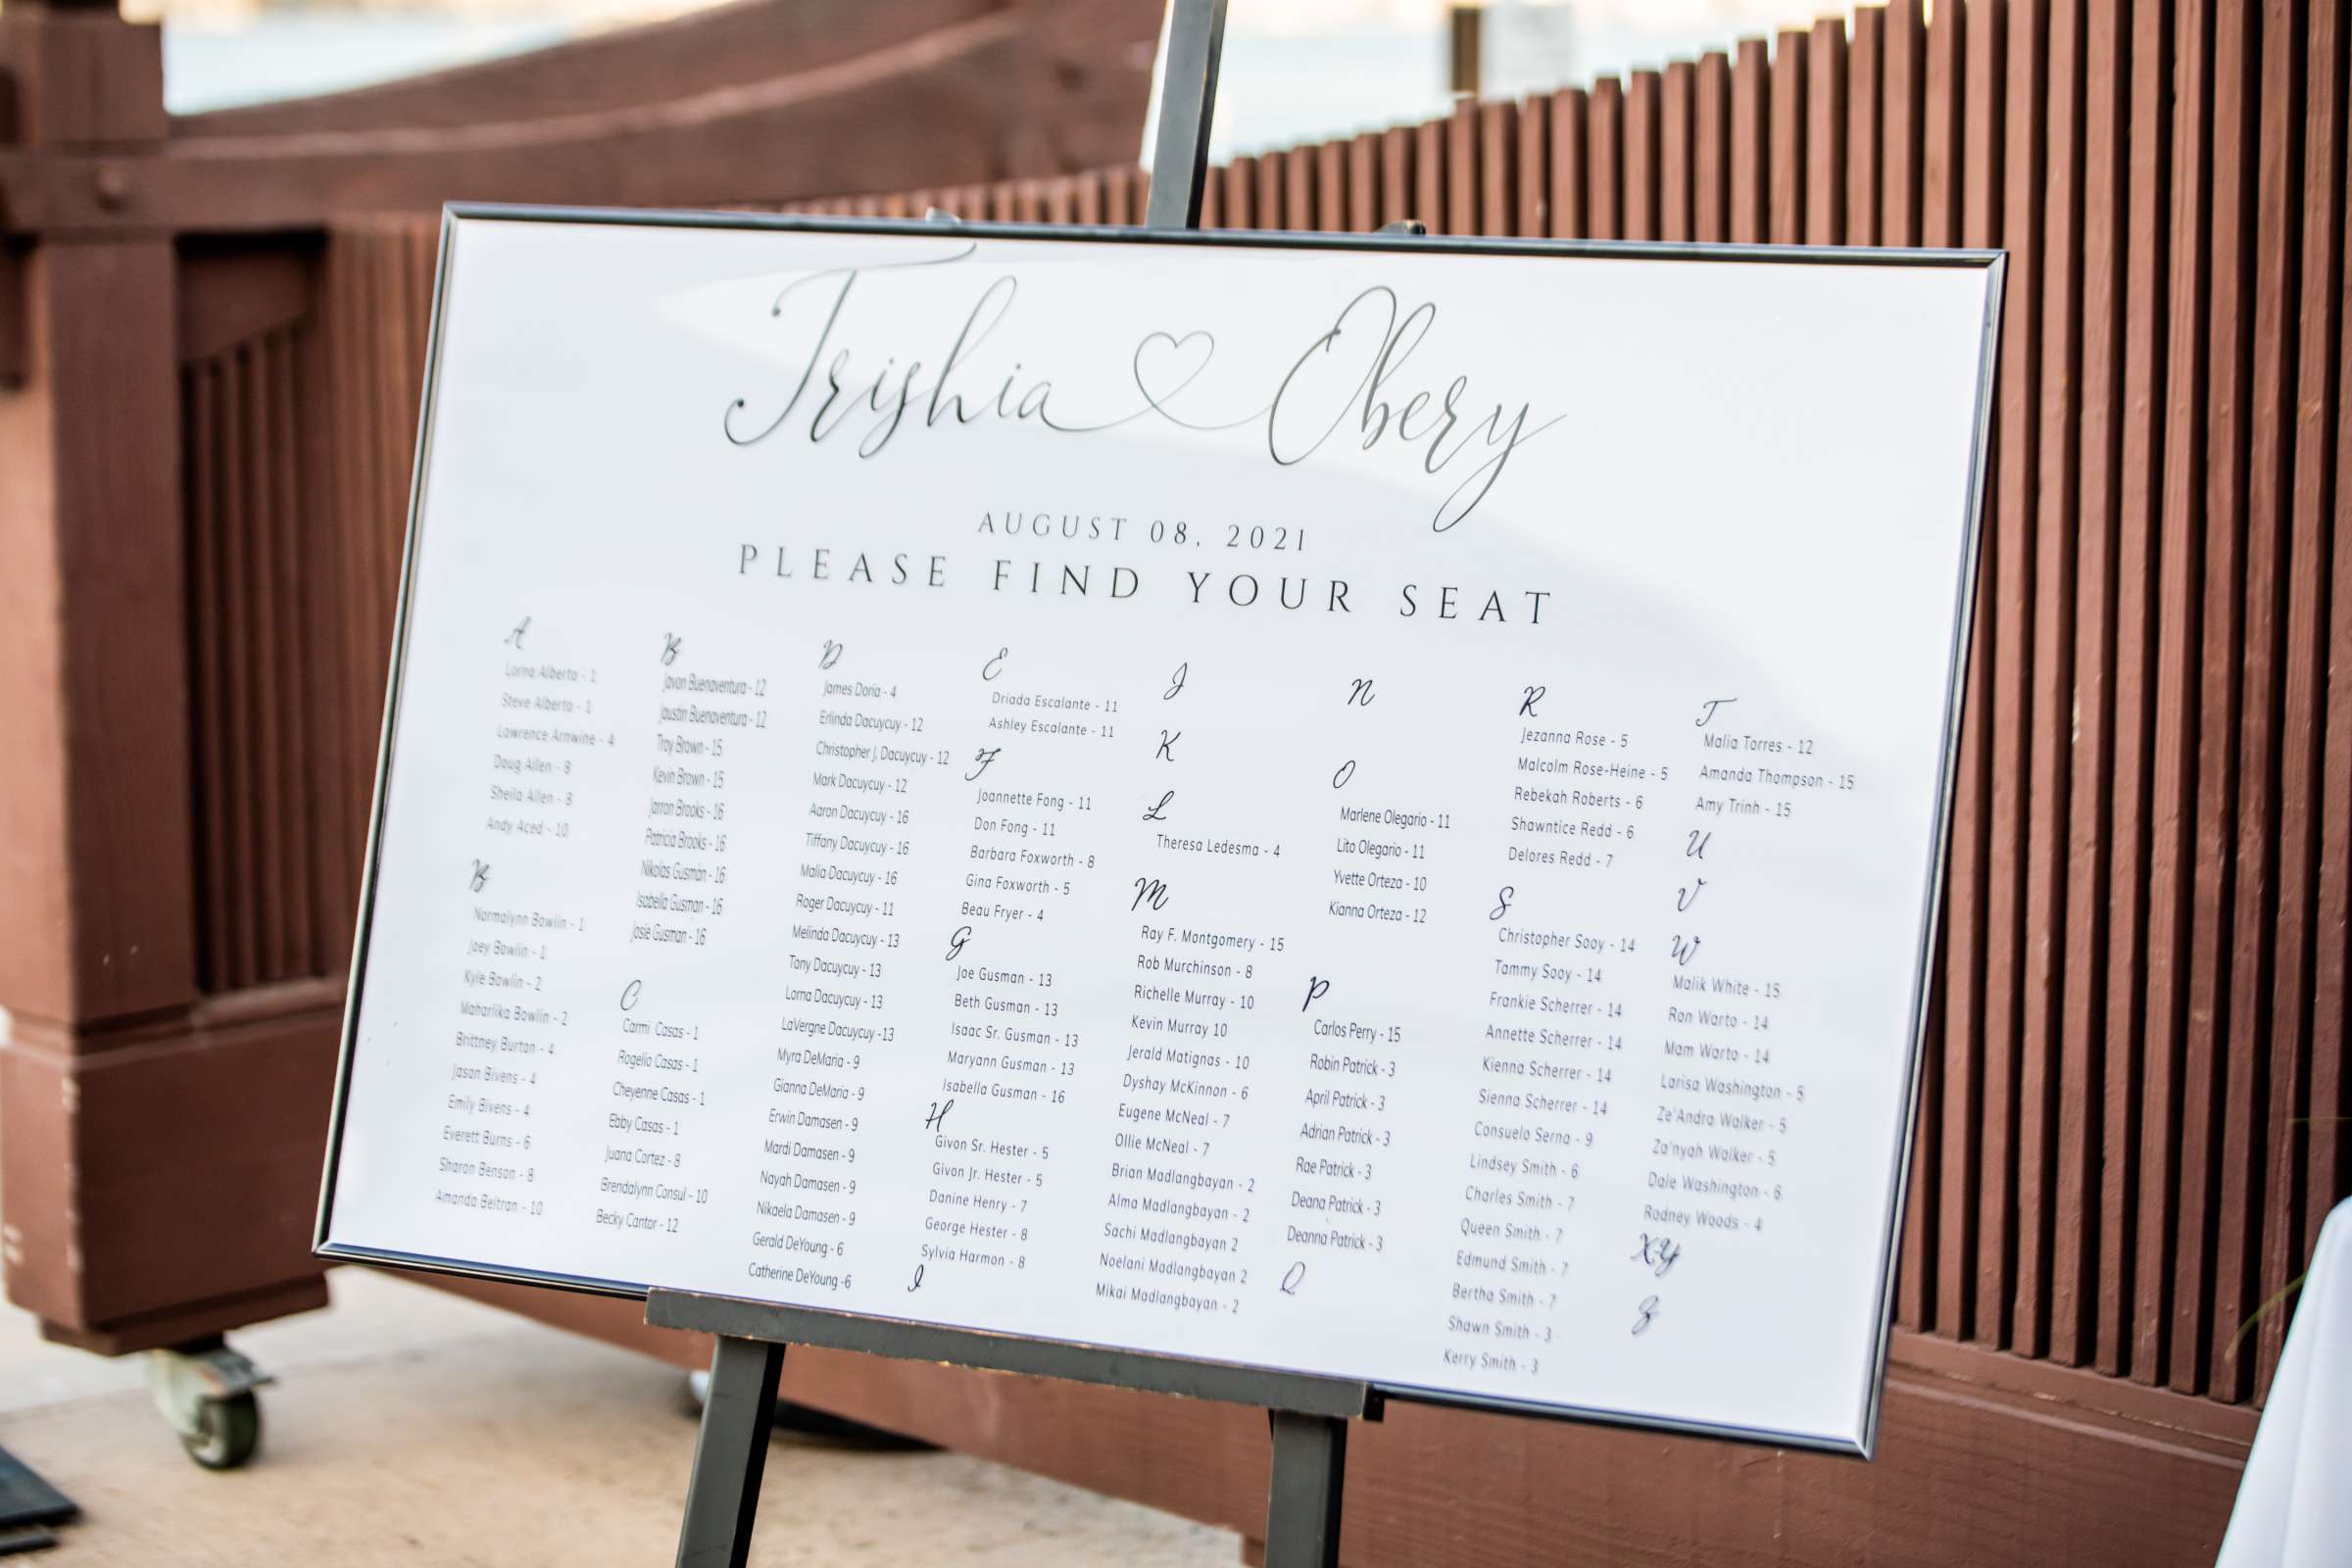 Trishia Obery
AUGUST 08, 2021
PLEASE FIND YOUR SEAT
A
Lorna Alberto - 1
Steve Alberto - 1
Lawrence Arnwine - 4
Doug Allen - 8
Sheila Allen - 8
Andy Aced - 10
B
Normalynn Bowlin - 1
Joey Bowlin - 1
Kyle Bowlin - 2
Maharlika Bowlin - 2
Brittney Burton - 4
Jason Bivens - 4
Emily Bivens - 4
Everett Burns - 6
Sharon Benson - 8
Amanda Beltran - 10
B
Javon Buenaventura - 12
Jaustin Buenaventura - 12
Troy Brown - 15
Kevin Brown - 15
Jarron Brooks - 16
Patricia Brooks - 16
Nikolas Gusman - 16
Isabella Gusman - 16
Josie Gusman - 16
C
Carmi Casas - 1
Rogelio Casas - 1
Cheyenne Casas - 1
Ebby Casas - 1
Juana Cortez - 8
Brendalynn Consul - 10
Becky Cantor - 12
D
James Doria - 4
Erlinda Dacuycuy - 12
Christopher J. Dacuycuy - 12
Mark Dacuycuy - 12
Aaron Dacuycuy - 16
Tiffany Dacuycuy - 16
Malia Dacuycuy - 16
Roger Dacuycuy - 11
Melinda Dacuycuy - 13
Tony Dacuycuy - 13
Lorna Dacuycuy - 13
LaVergne Dacuycuy -13
Myra DeMaria - 9
Gianna DeMaria - 9
Erwin Damasen - 9
Mardi Damasen - 9
Nayah Damasen - 9
Nikaela Damasen - 9
Gerald DeYoung - 6
Catherine DeYoung -6
E
Driada Escalante - 11
Ashley Escalante - 11
F
Joannette Fong - 11
Don Fong - 11
Barbara Foxworth - 8
Gina Foxworth - 5
Beau Fryer - 4
G
Joe Gusman - 13
Beth Gusman - 13
Isaac Sr. Gusman - 13
Maryann Gusman - 13
Isabella Gusman - 16
H
Givon Sr. Hester - 5
Givon Jr. Hester - 5
Danine Henry - 7
George Hester - 8
Sylvia Harmon - 8
I
J
K
L
Theresa Ledesma - 4
M
Ray F. Montgomery - 15
Rob Murchinson - 8
Richelle Murray - 10
Kevin Murray 10
Jerald Matignas - 10
Dyshay McKinnon - 6
Eugene McNeal - 7
Ollie McNeal - 7
Brian Madlangbayan - 2
Alma Madlangbayan - 2
Sachi Madlangbayan 2
Noelani Madlangbayan 2
Mikai Madlangbayan - 2
N
O
Marlene Olegario - 11
Lito Olegario - 11
Yvette Orteza - 10
Kianna Orteza - 12
P
Carlos Perry - 15
Robin Patrick - 3
April Patrick - 3
Adrian Patrick - 3
Rae Patrick - 3
Deana Patrick - 3
Deanna Patrick - 3
Q
R
Jezanna Rose - 5
Malcolm Rose-Heine - 5
Rebekah Roberts - 6
Shawntice Redd - 6
Delores Redd - 7
S
Christopher Sooy - 14
Tammy Sooy - 14
Frankie Scherrer - 14
Annette Scherrer - 14
Kienna Scherrer - 14
Sienna Scherrer - 14
Consuelo Serna - 9
Lindsey Smith - 6
Charles Smith - 7
Queen Smith - 7
Edmund Smith - 7
Bertha Smith - 7
Shawn Smith - 3
Kerry Smith - 3
T
Malia Torres - 12
Amanda Thompson - 15
Amy Trinh - 15
U
V
W
Malik White - 15
Ron Warto - 14
Mam Warto - 14
Larisa Washington - 5
Ze'Andra Walker - 5
Za'nyah Walker - 5
Dale Washington - 6
Rodney Woods - 4
X-Y
Z